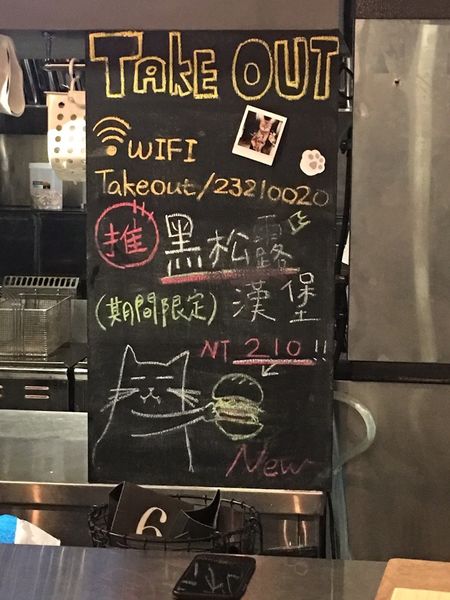 TAKE OUT
WIFI
Takeout/23210020
推 黑松露
(期間限定) 漢堡
NT 210!!
New
6